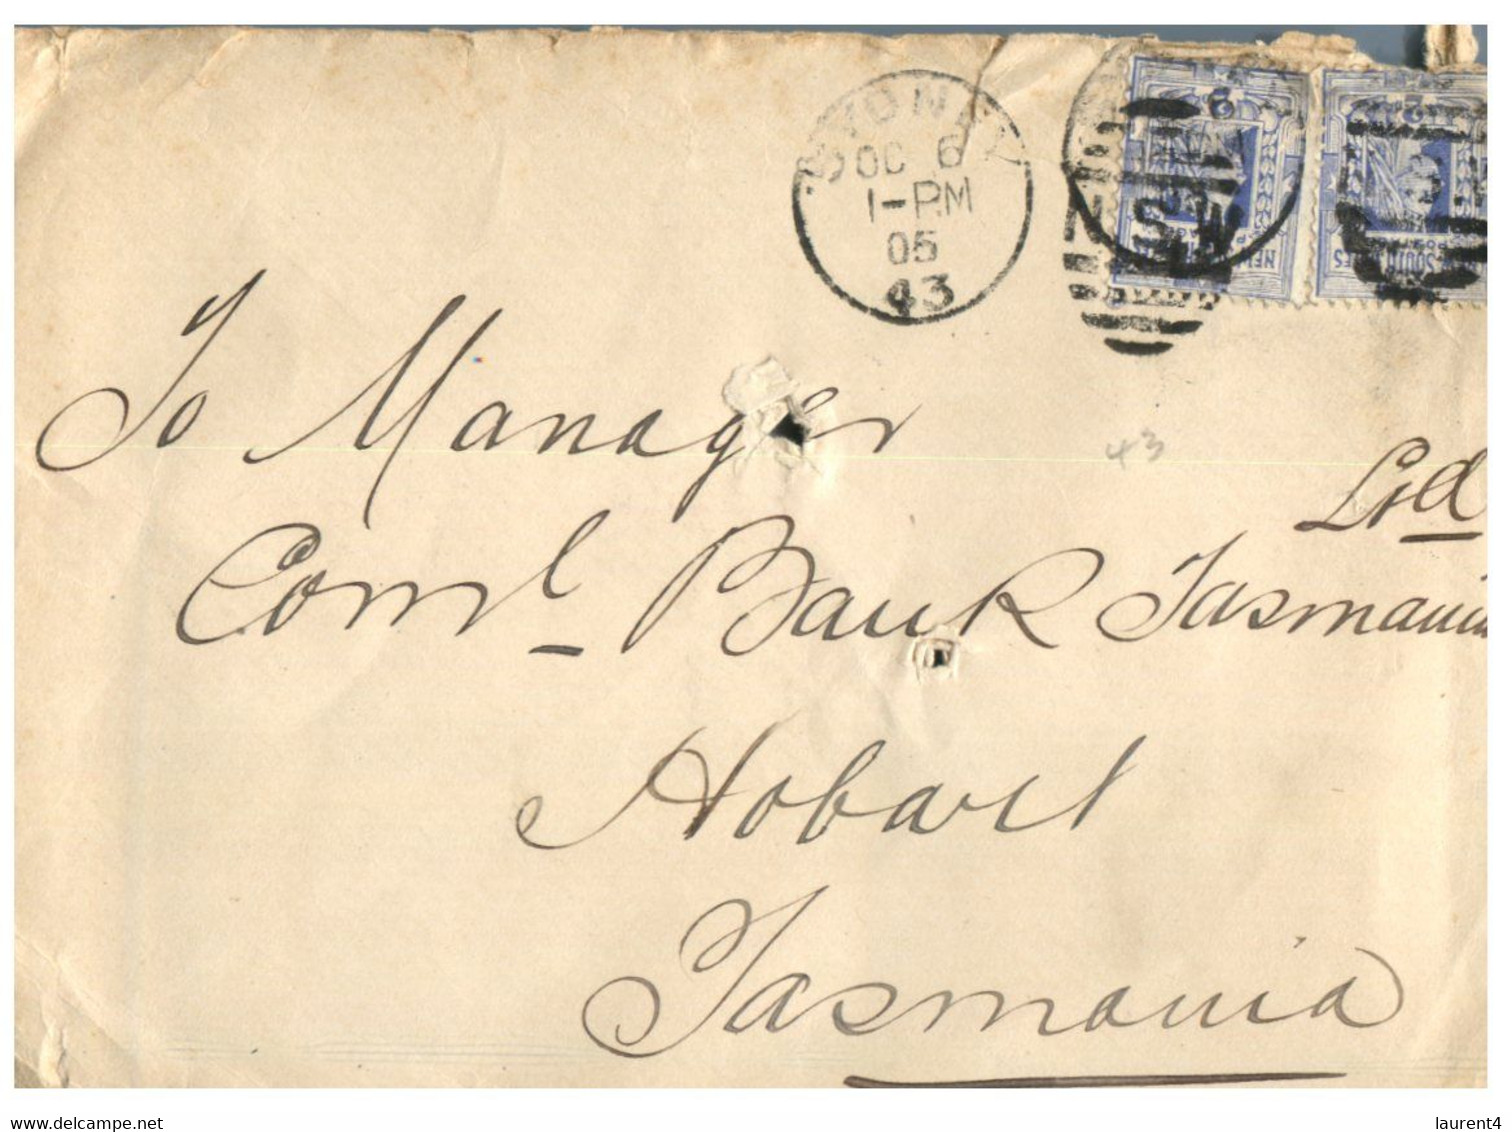 SYDNEY
OC 6
1-PM
05
43
N.S.W
NEW SOUTH WALES
POSTAGE
To Manager
43
Ltd
Coml Bank Tasmania
Hobart
Tasmania
www.delcampe.net
laurent4